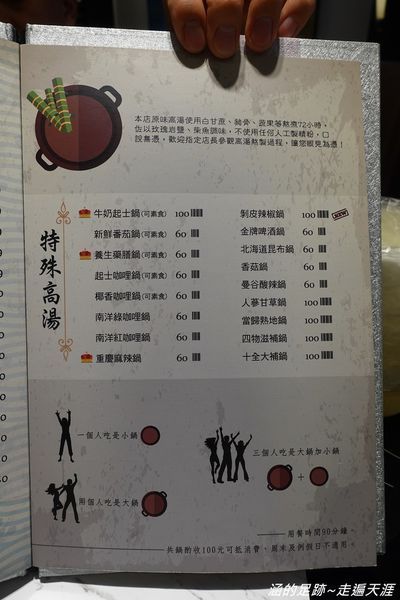 本店原味高湯使用白甘蔗、豬骨、蔬果等熬煮72小時，
佐以玫瑰岩鹽、柴魚調味，不使用任何人工製精粉，口
說無憑，歡迎指定店長參觀高湯熬製過程，讓您眼見為憑！
特殊高湯
牛奶起士鍋(可素食) 100
新鮮番茄鍋(可素食) 60
養生藥膳鍋(可素食) 60
起士咖哩鍋(可素食) 60
椰香咖哩鍋(可素食) 60
南洋綠咖哩鍋 60
南洋紅咖哩鍋 60
重慶麻辣鍋 60
剝皮辣椒鍋 100 NEW
金牌啤酒鍋 60
北海道昆布鍋 60
香菇鍋 60
曼谷酸辣鍋 60
人蔘甘草鍋 100
當歸熟地鍋 100
四物滋補鍋 100
十全大補鍋 100
一個人吃是小鍋
兩個人吃是大鍋
三個人吃是大鍋加小鍋
+
用餐時間90分鐘。
共鍋酌收100元可抵消費，周末及例假日不適用。
涵的足跡~走遍天涯